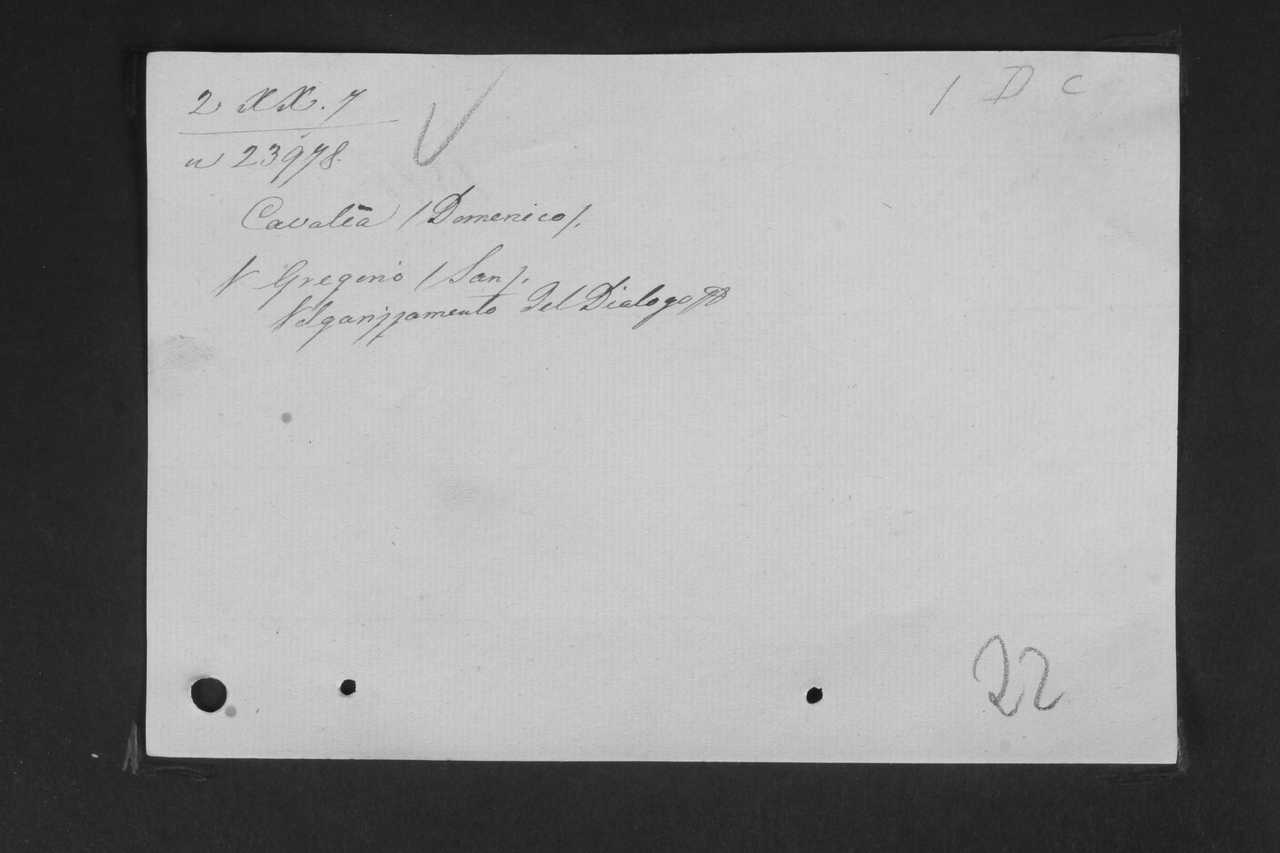 2 XX. 7
n 23978.
1 D C
Cavalca (Domenico).
V Gregorio (San).
Volgarizzamento del Dialogo
22